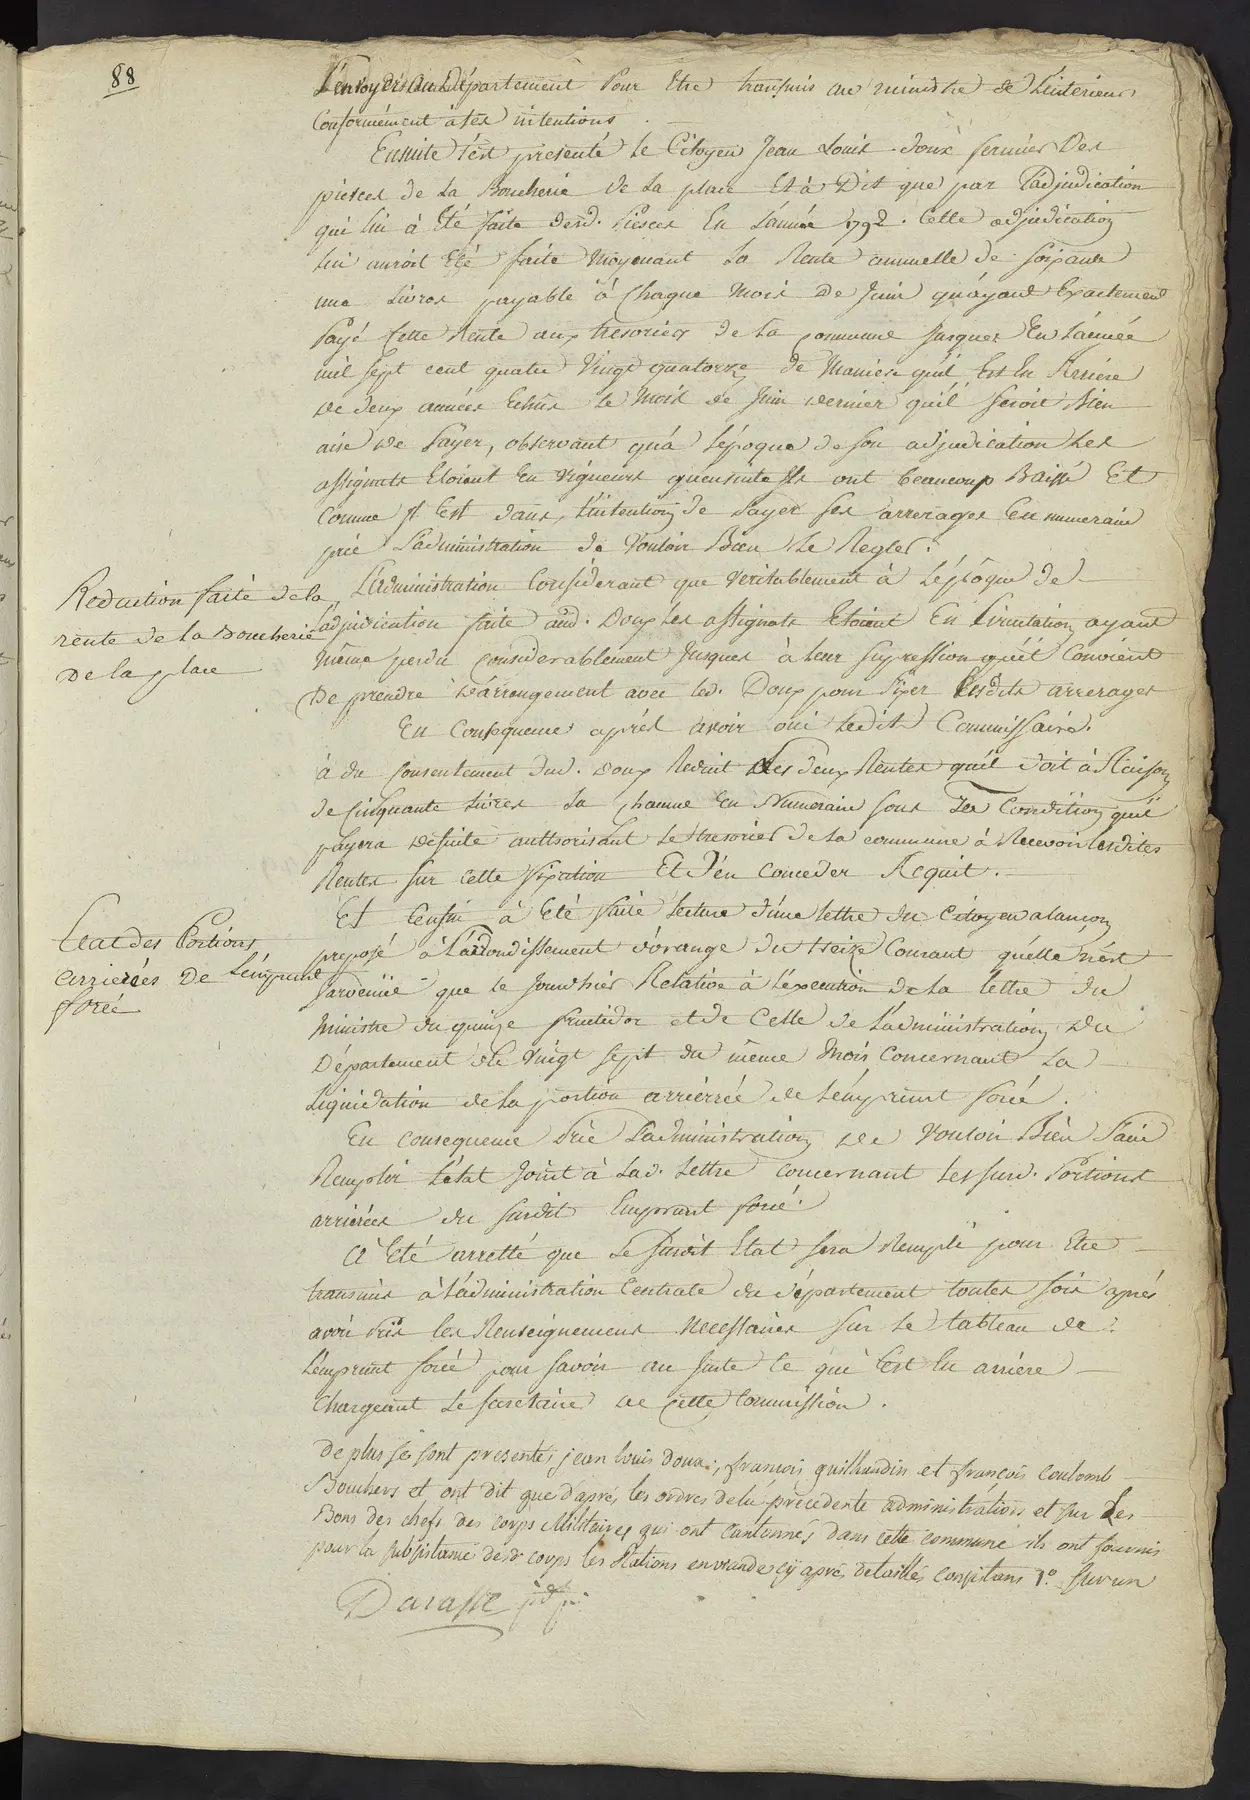 88
L'envoyer au Département Pour Etre transmis au ministre de L'interieur
Conformément à ses intentions.
Ensuite s'est presenté le Citoyen Jean Louis Doux fermier Des
pieces de la Boucherie de la place Et à Dit que par l'adjudication
qui lui à Eté faite desd. Pieces En L'année 1792. Cette adjudication
lui auroit Eté faite Moyenant La Rente annuelle de soixante
une Livres payable à Chaque Mois De Juin qu'ayant Exactement
Payé Cette Rente aux tresoriers de La commune Jusques En L'année
mil sept cent quatre Vingt quatorze de Maniere qu'il Est En Arriere
de deux années Echus le Mois de Juin dernier qu'il seroit Bien
aise de Payer, observant qu'a l'époque de son adjudication Les
assignats Etoient En Vigueur qu'ensuite Ils ont beaucoup Baissé Et
Comme Il Est dans L'intention de Payer ses arrerages En numeraire
prie L'administration de Vouloir Bien Le Regler.
Reduction faite de la
rente de la Boucherie
De la place
L'administration Considerant que Veritablement à L'époque de
L'adjudication faite aud. Doux Les assignats Etoient En Circulation ayant
même perdu Considerablement Jusques à leur supression qu'il Convient
De prendre d'arrangement avec led. Doux pour fixer Lesdits arrerages
En Consequence aprés avoir oui Ledit Commissaire.
à du Consentement dud. Doux Reduit Les deux Rentes qu'il doit à Raison
de Cinquante Livres La Chacune En Numeraire sous La Condition qu'il
payera desuite authorisant Le tresorier de La commune à Recevoir Lesdites
Rentes sur cette fixation Et D'en Conceder Acquit.
Etat des Portions
arrierées De L'émprunt
forcé
Et Enfin à Eté faite lecture d'une lettre du Citoyen alançon
preposé à L'arrondissement d'orange du treize Courant qu'elle n'ést
Parvenüe que le jourd'hier Relative à L'éxecution de La lettre du
Ministre du quinze fructidor et de Celle de L'administration du
Département de Vingt sept du même Mois Concernant La
Liquidation de La portion arriérrée de L'émprunt forcé.
En consequence Prie L'administration de Vouloir Bien faire
Remplir L'état Joint à Lad. Lettre concernant Les susd. Portions
arrierées du susdit Emprunt forcé.
à Eté arretté que Le susdit Etat sera Rempli pour Etre
transmis à L'administration Centrale du département toutes fois aprés
avoir Pris les Renseignemens Necessaires sur Le tableau de
L'emprunt forcé pour savoir au Juste Ce que Est En arriere
Chargeant Le secretaire de Cette Commission.
De plus se sont presentés jean louis doux, francois guilhaudin et françois coulomb
Bouchers et ont dit que d'aprés les ordres de la précedente administration et sur Les
Bons des chefs des corps Militaires qui ont cantonnés dans cette commune ils ont fournis
pour la subsistance desd. corps les Rations en viande cÿ aprés detaillés consistans 1°. sur un
Dacasse pdt